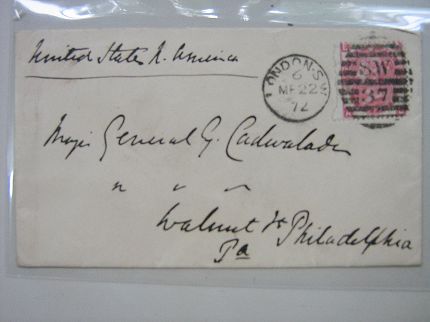 United States N. America
LONDON-S.W
6
MR 22
72
S.W
37
Major General G. Cadwalader
" " "
Walnut St Philadelphia
Pa